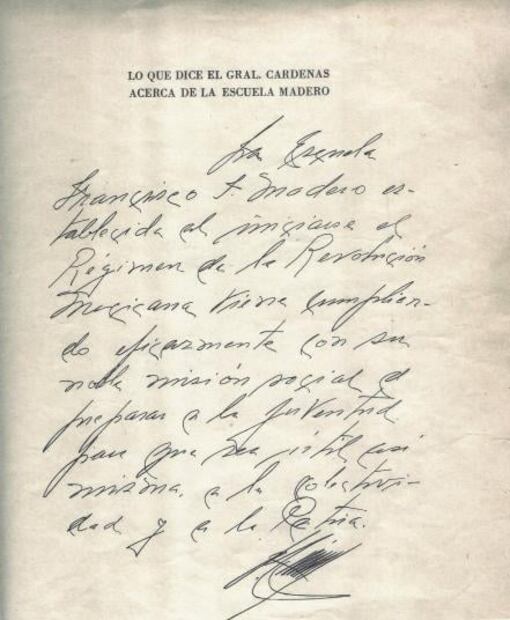 LO QUE DICE EL GRAL. CARDENAS
ACERCA DE LA ESCUELA MADERO
La Escuela
Francisco I. Madero es-
tablecida al iniciarse el
Régimen de la Revolución
Mexicana viene cumplien-
do eficazmente con su
noble misión social de
preparar a la juventud
para que sea útil así
misma, a la colectivi-
dad y a la Patria.